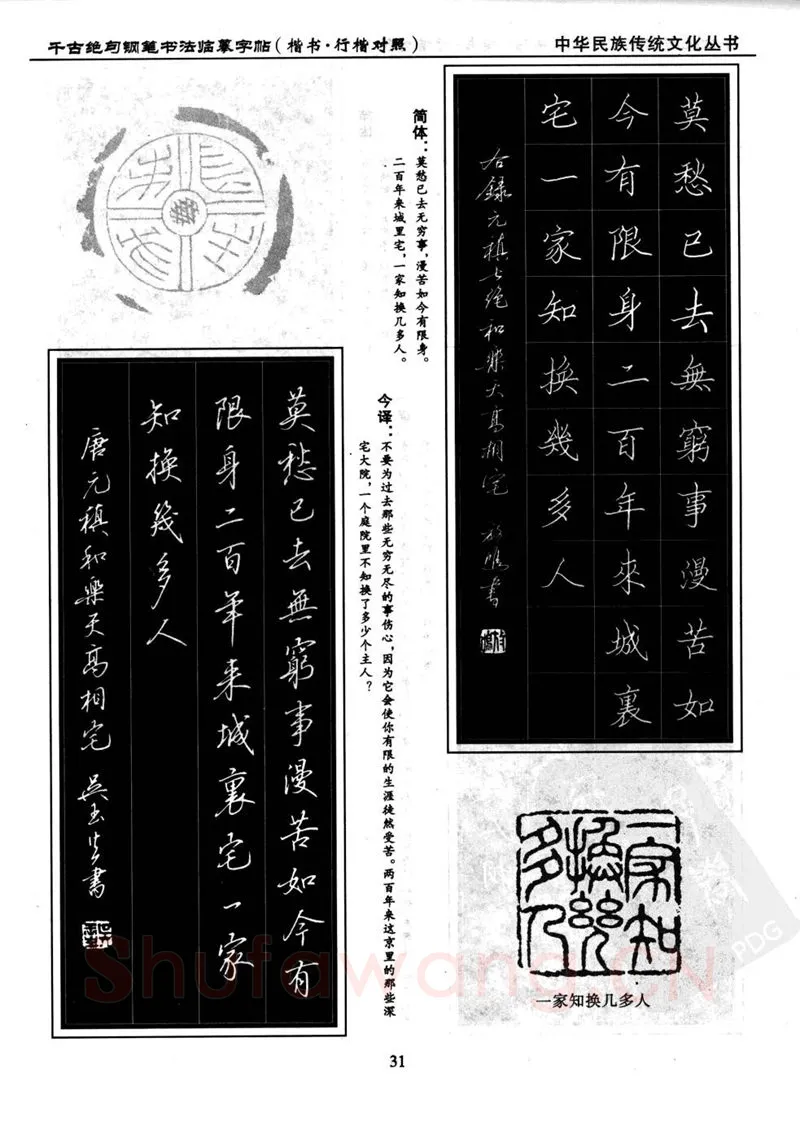 千古绝句钢笔书法临摹字帖(楷书·行楷对照)
中华民族传统文化丛书
莫愁已去無窮事漫苦如
今有限身二百年來城裏
宅一家知换幾多人
右録元稹七絶和樂天高相宅
書
简体:莫愁已去无穷事,漫苦如今有限身。
二百年来城里宅,一家知换几多人。
今译:不要为过去那些无穷无尽的事伤心,因为它会使你有限的生涯徒然受苦。两百年来这京里的那些深
宅大院,一个庭院里不知换了多少个主人?
莫愁已去無窮事漫苦如今有
限身二百年来城裏宅一家
知换幾多人
唐元稹和樂天高相宅 吴玉生書
一家知换几多人
一家知换几多人
31
Shufawang.CN
PDG